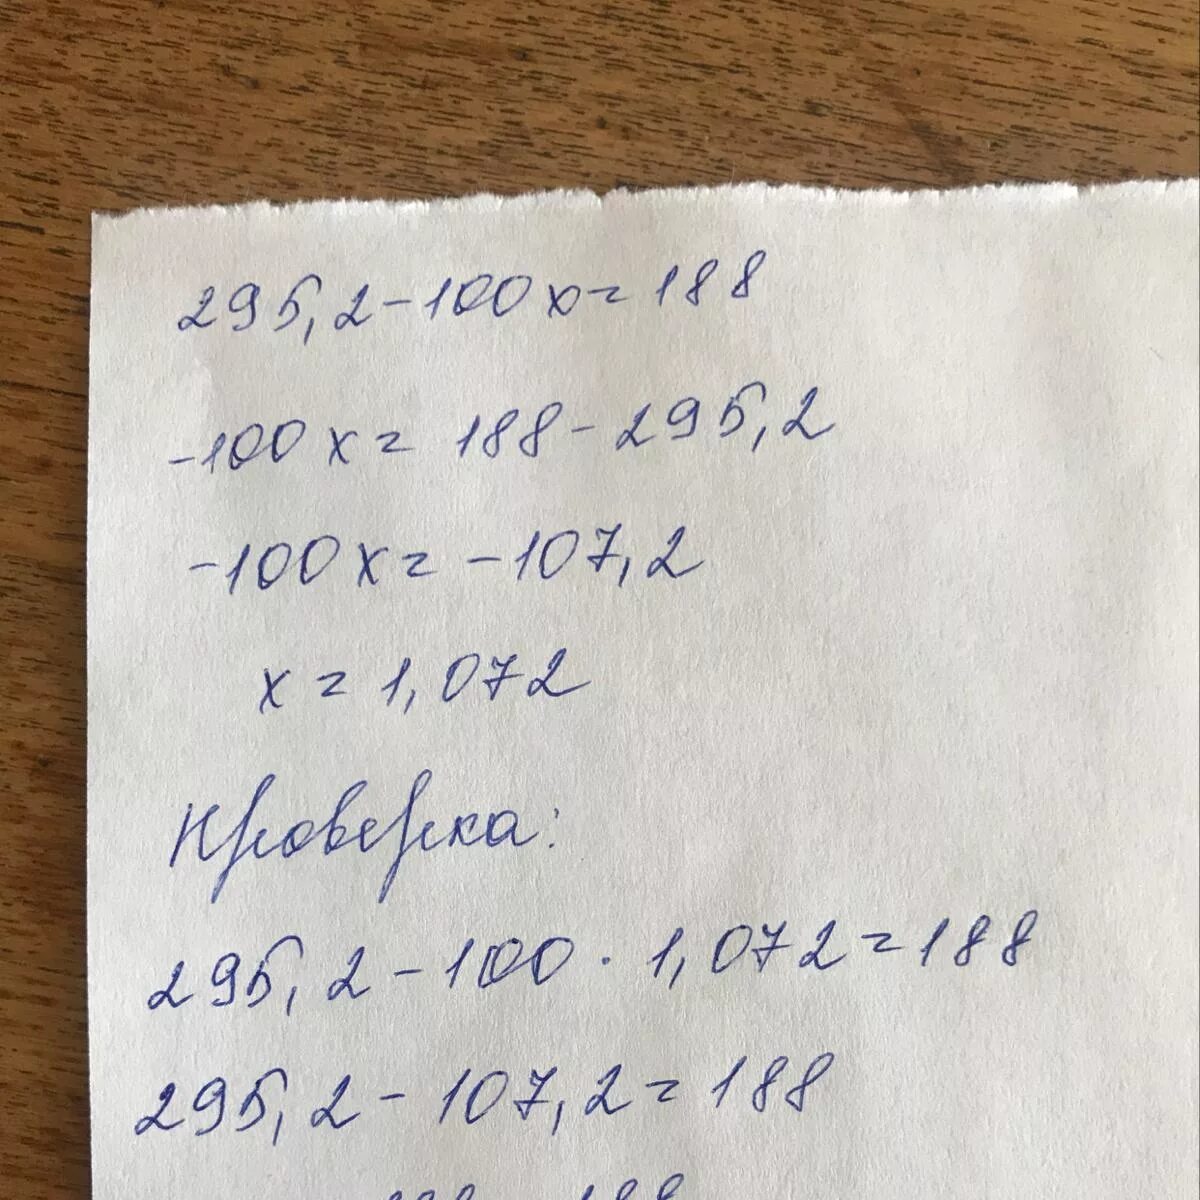 295,2-100x=188
-100x=188-295,2
-100x=-107,2
x=1,072
Проверка:
295,2-100·1,072=188
295,2-107,2=188
188 188